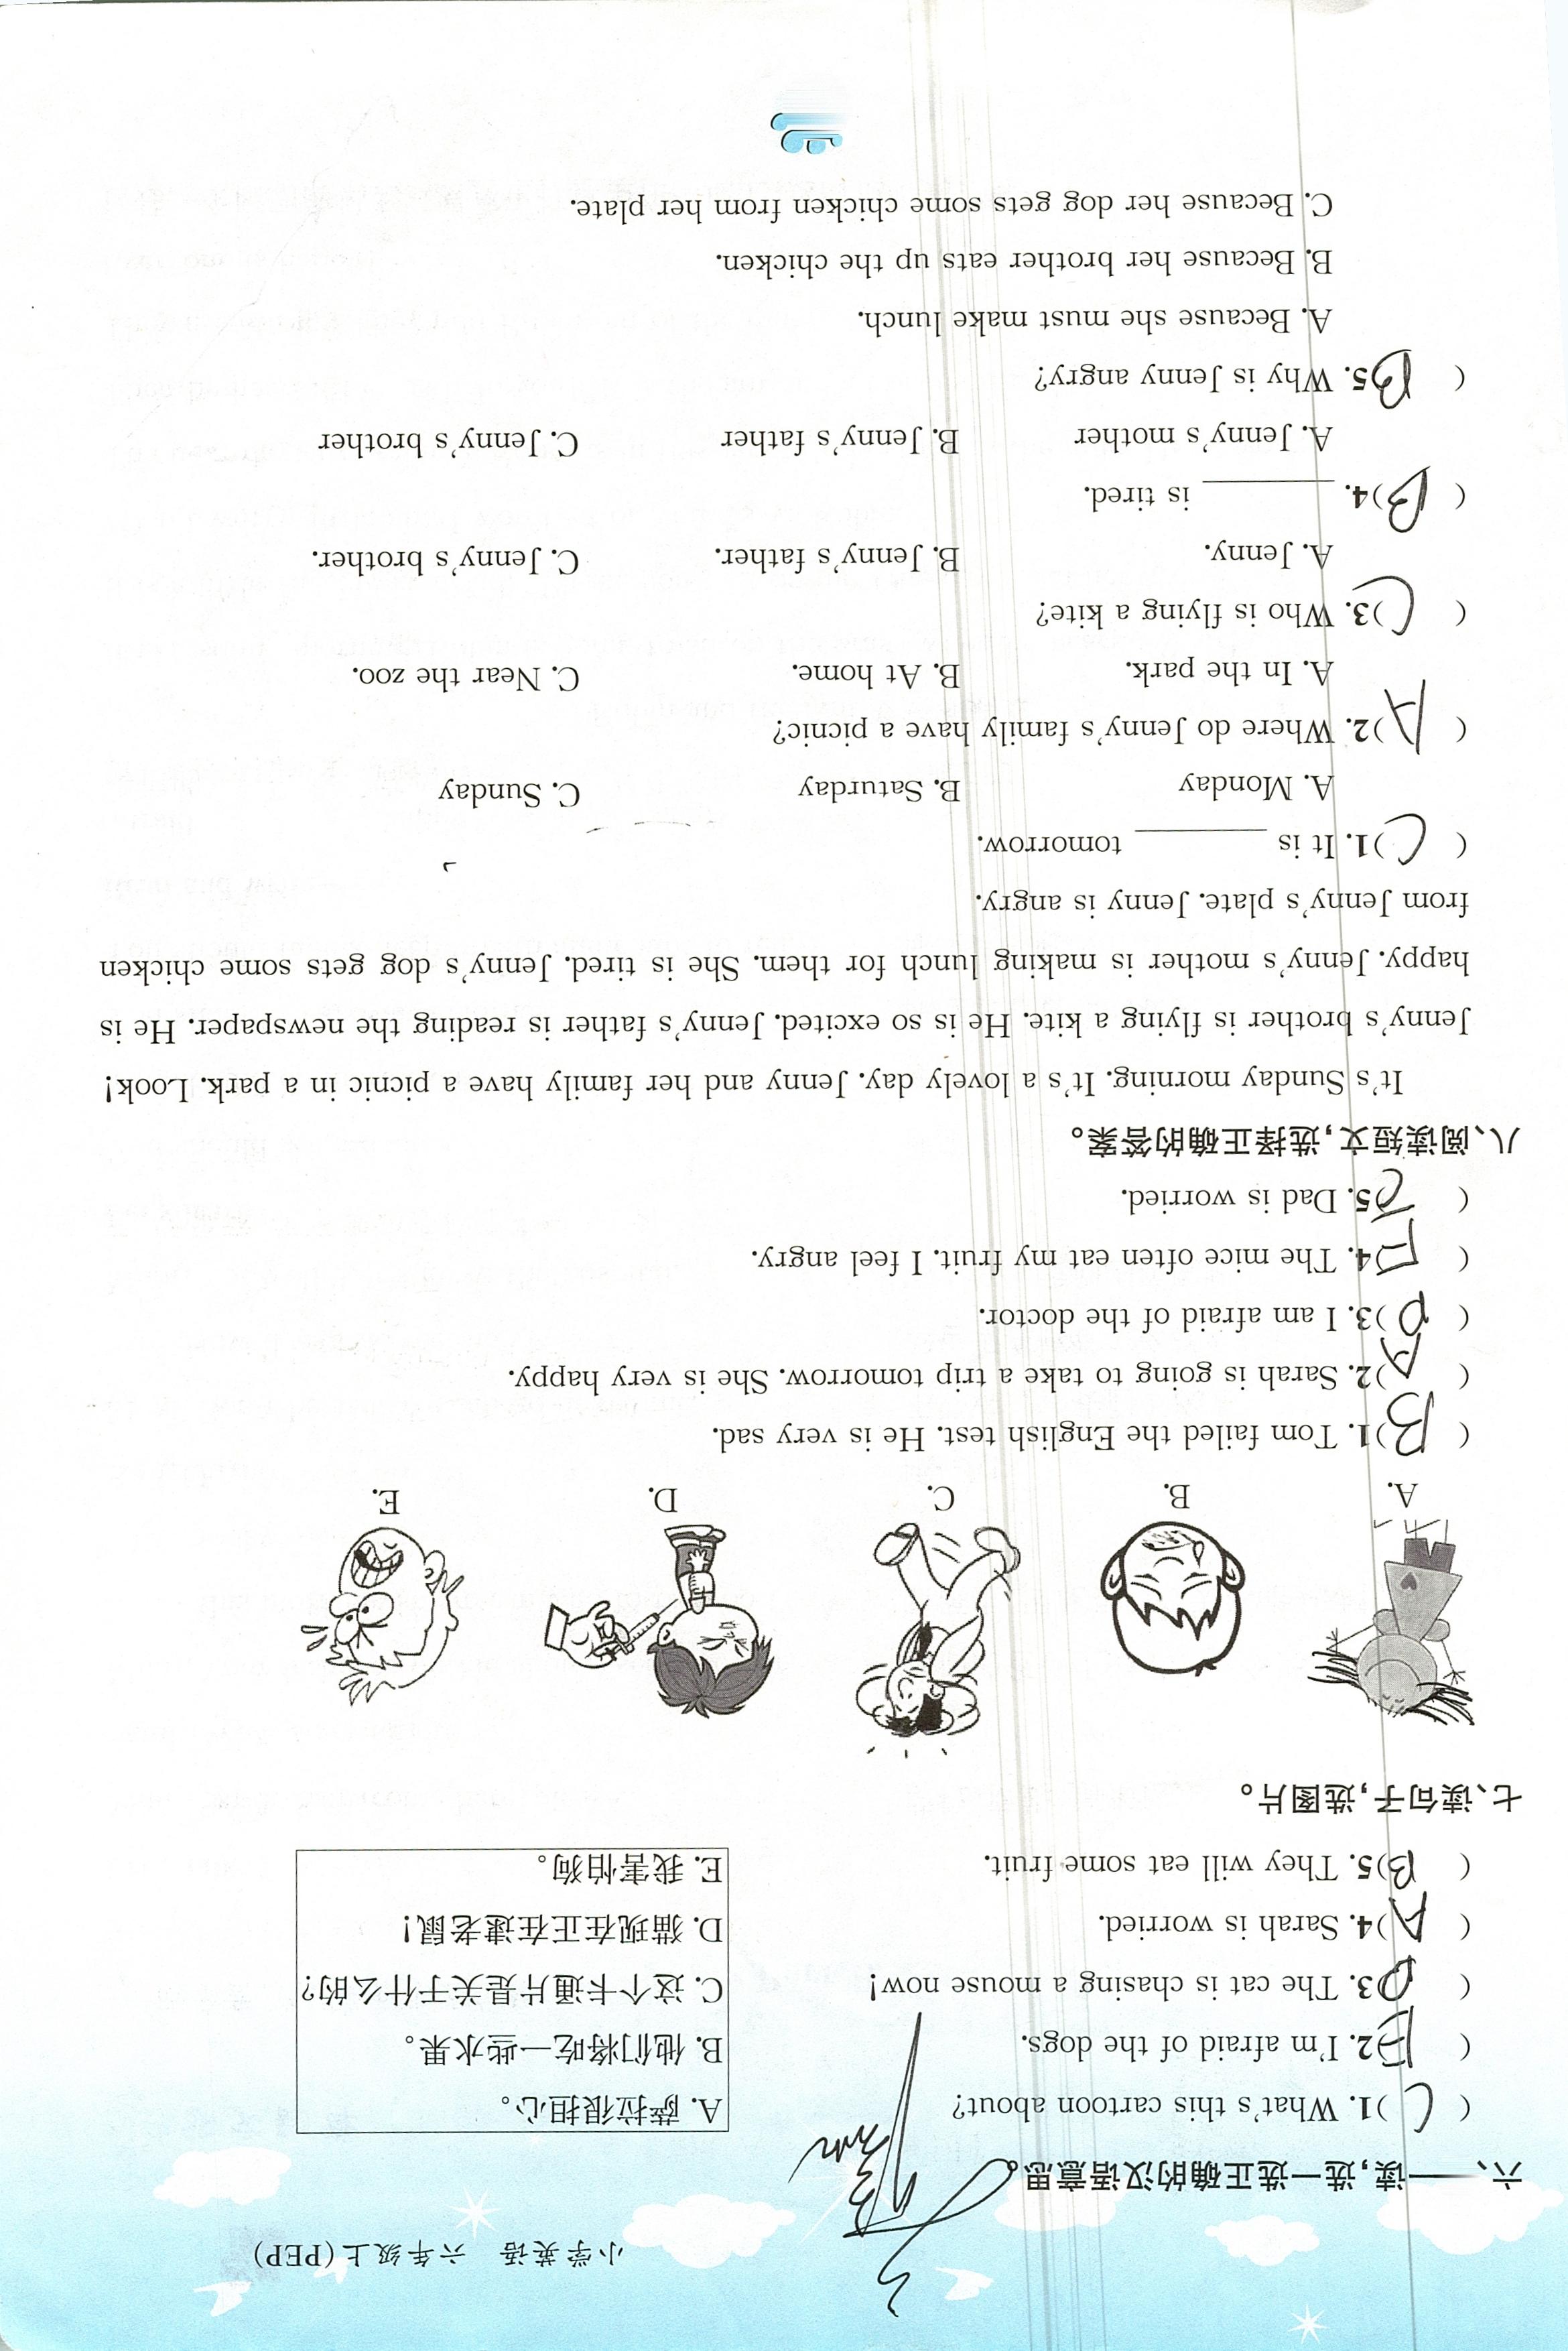 小学英语 六年级上(PEP)
六、一读,选一选正确的汉语意思。
( C )1. What's this cartoon about?
( E )2. I'm afraid of the dogs.
( D )3. The cat is chasing a mouse now!
( A )4. Sarah is worried.
( B )5. They will eat some fruit.
A. 萨拉很担心。
B. 他们将吃一些水果。
C. 这个卡通片是关于什么的?
D. 猫现在正在逮老鼠!
E. 我害怕狗。
七、读句子,选图片。
A. B. C. D. E.
( B )1. Tom failed the English test. He is very sad.
( A )2. Sarah is going to take a trip tomorrow. She is very happy.
( D )3. I am afraid of the doctor.
( E )4. The mice often eat my fruit. I feel angry.
( C )5. Dad is worried.
八、阅读短文,选择正确的答案。
It's Sunday morning. It's a lovely day. Jenny and her family have a picnic in a park. Look!
Jenny's brother is flying a kite. He is so excited. Jenny's father is reading the newspaper. He is
happy. Jenny's mother is making lunch for them. She is tired. Jenny's dog gets some chicken
from Jenny's plate. Jenny is angry.
( C )1. It is ________ tomorrow.
A. Monday B. Saturday C. Sunday
( A )2. Where do Jenny's family have a picnic?
A. In the park. B. At home. C. Near the zoo.
( C )3. Who is flying a kite?
A. Jenny. B. Jenny's father. C. Jenny's brother.
( B )4. ________ is tired.
A. Jenny's mother B. Jenny's father C. Jenny's brother
( B )5. Why is Jenny angry?
A. Because she must make lunch.
B. Because her brother eats up the chicken.
C. Because her dog gets some chicken from her plate.